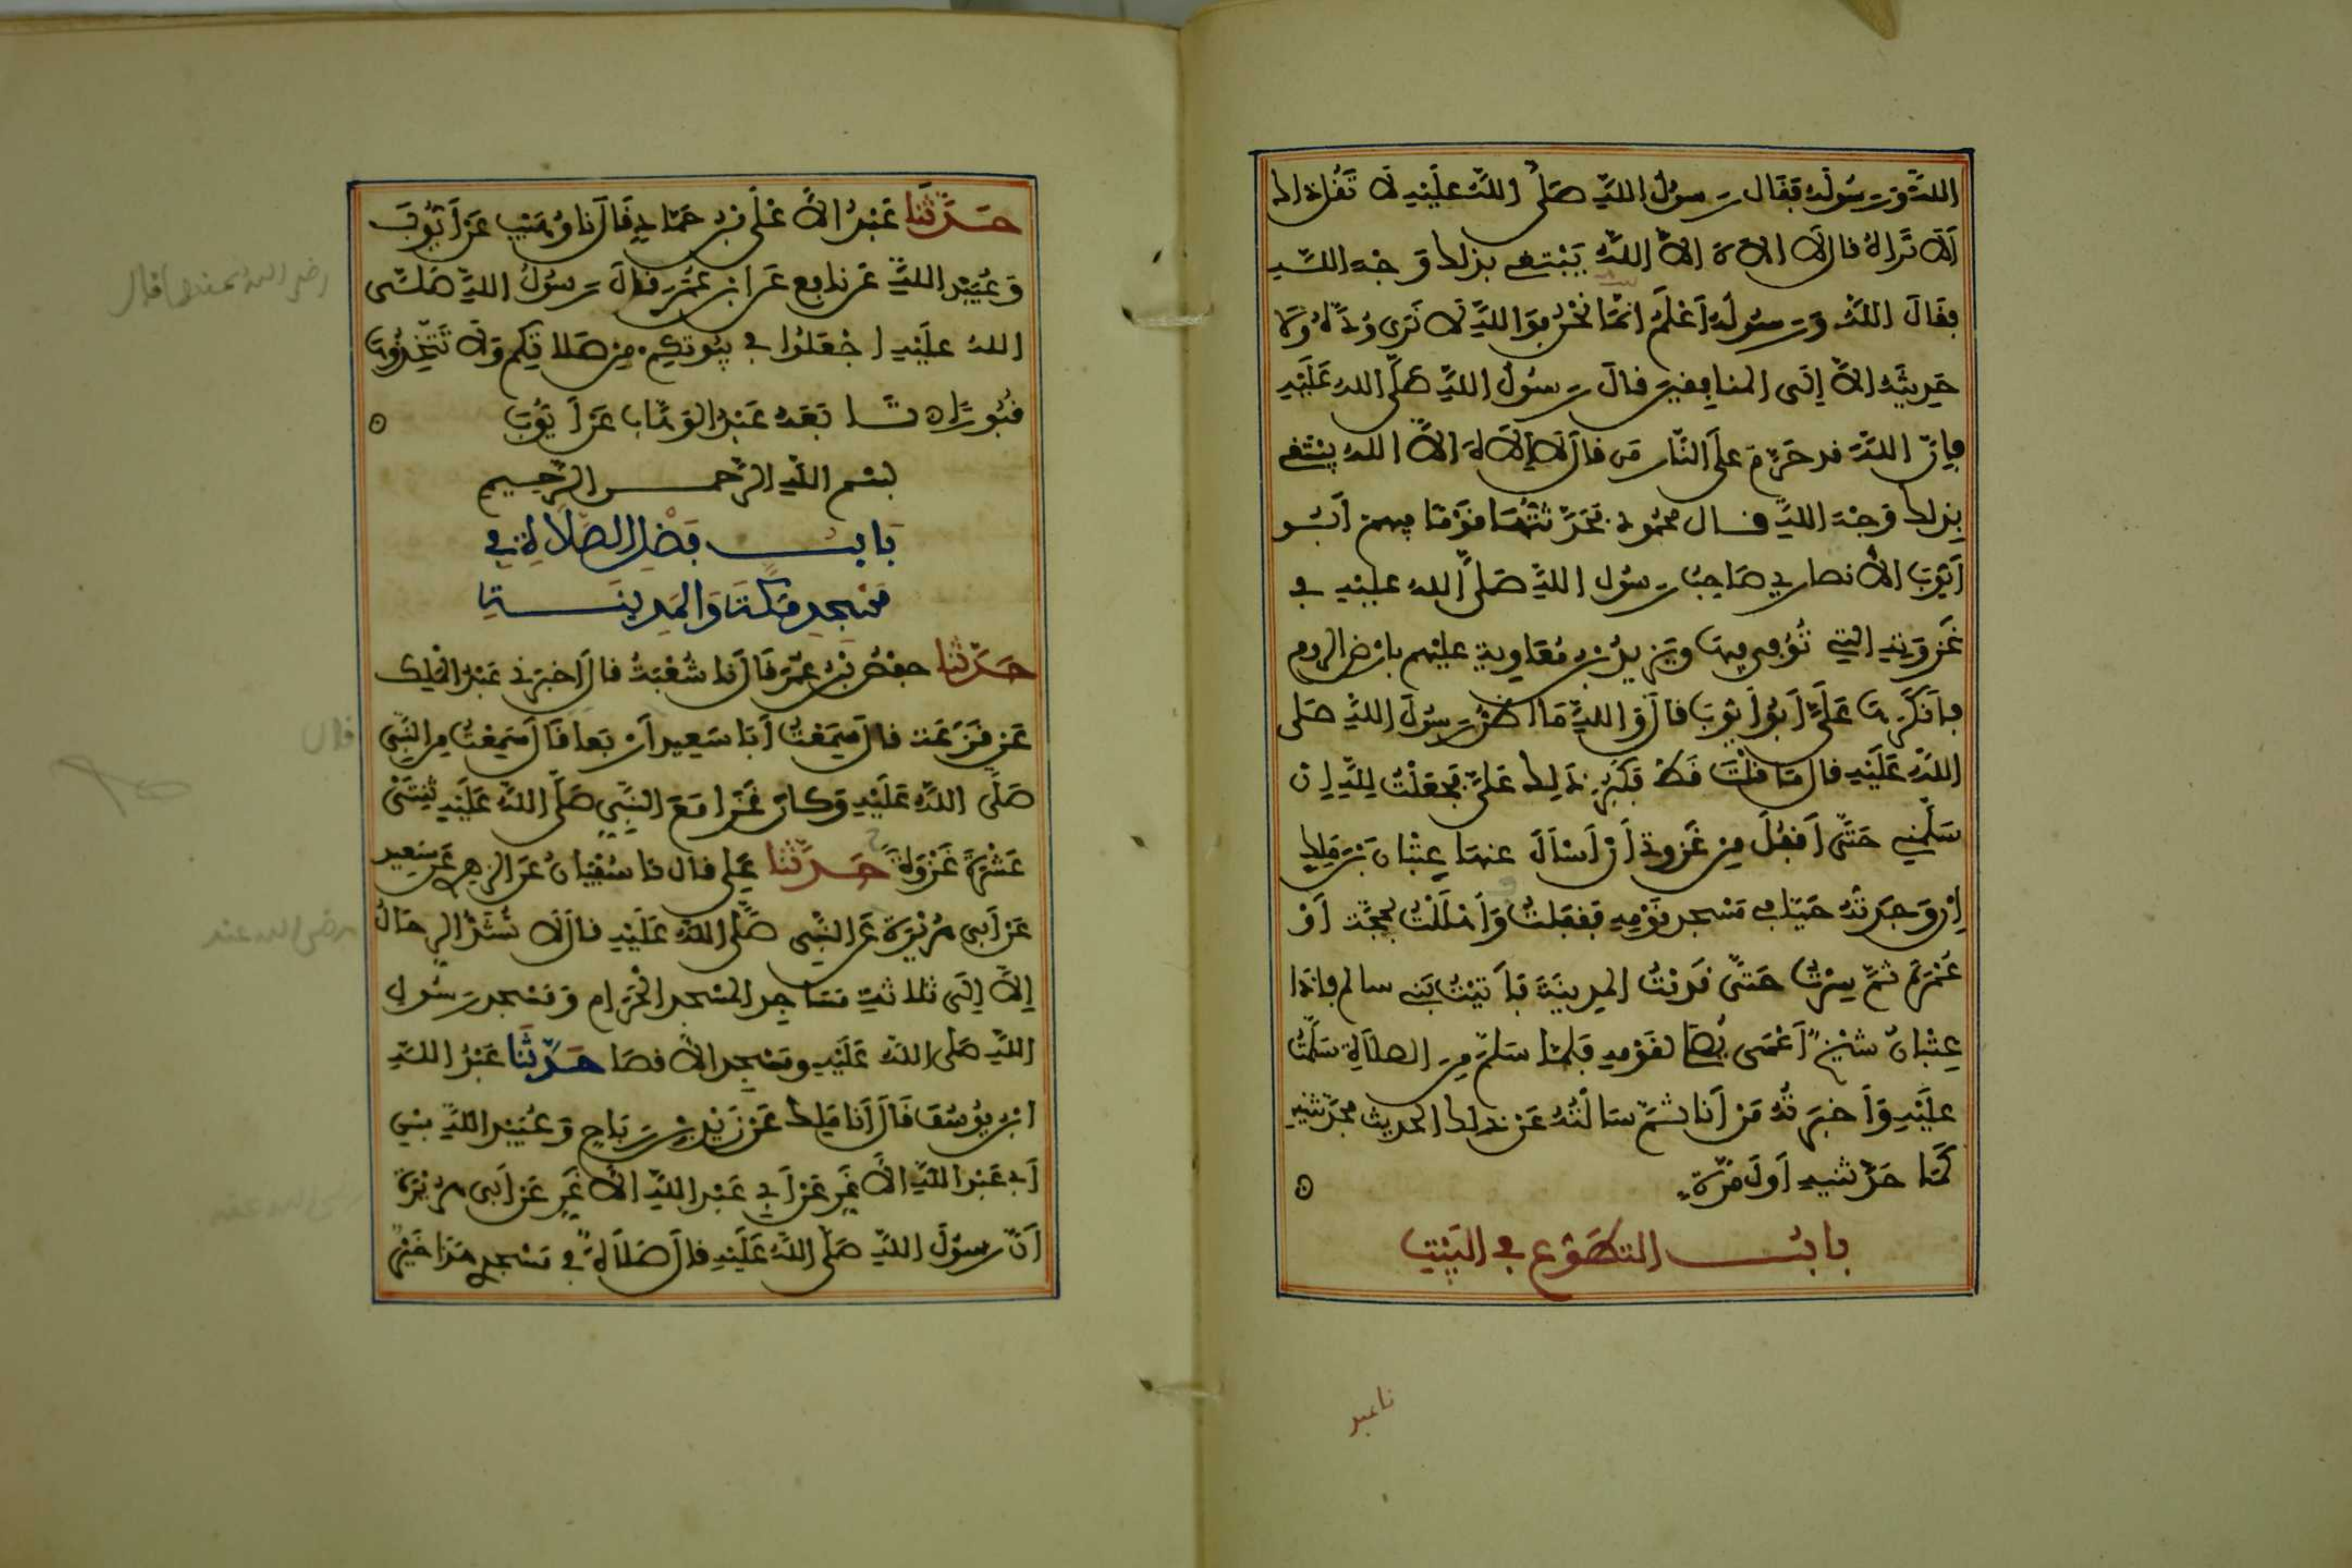 الله ورسوله فقال رسول الله صلى الله عليه لا تقل ذاك
ألا تراه قال لا إلاه إلا الله يبتغي بذلك وجه الله
فقال الله ورسوله أعلم أما نحن فوالله لا نرى وده ولا
حديثه إلا إلى المنافقين قال رسول الله صلى الله عليه
فإن الله قد حرم على النار من قال لا إلاه إلا الله يبتغي
بذلك وجه الله قال محمود فحدثتها قوما فيهم أبو
أيوب الأنصاري صاحب رسول الله صلى الله عليه في
غزوته التي توفي فيها ويزيد بن معاوية عليهم بأرض الروم
فأنكرها علي أبو أيوب قال والله ما أظن رسول الله صلى
الله عليه قال ما قلت قط فكبر ذلك علي فجعلت لله إن
سلمني حتى أقفل من غزوتي أن أسأل عنها عتبان بن مالك
إن وجدته حيا في مسجد قومه فقفلت وأهللت بحجة أو
عمرة ثم سرت حتى قدمت المدينة فأتيت بني سالم فإذا
عتبان شيخ أعمى يصلي لقومه فلما سلم من الصلاة سلمت
عليه وأخبرته من أنا ثم سألته عن ذلك الحديث فحدثنيه
كما حدثنيه أول مرة
باب التطوع في البيت
نا عبد
حدثنا عبد الأعلى بن حماد قال نا وهيب عن أيوب
وعبيد الله عن نافع عن ابن عمر قال رسول الله صلى
رضي الله عنهما قال
الله عليه اجعلوا في بيوتكم من صلاتكم ولا تتخذوها
قبورا تابعه عبد الوهاب عن أيوب
بسم الله الرحمن الرحيم
باب فضل الصلاة في
مسجد مكة والمدينة
حدثنا حفص بن عمر قال نا شعبة قال أخبرني عبد الملك
عن قزعة قال سمعت أبا سعيد أربعا قال سمعت من النبي
قال
صلى الله عليه وكان غزا مع النبي صلى الله عليه ثنتى
عشرة غزوة حدثنا علي قال نا سفيان عن الزهري عن سعيد
عن أبي هريرة عن النبي صلى الله عليه قال لا تشد الرحال
رضي الله عنه
إلا إلى ثلاثة مساجد المسجد الحرام ومسجد رسول
الله صلى الله عليه ومسجد الأقصا حدثنا عبد الله
ابن يوسف قال أنا مالك عن زيد بن رباح وعبيد الله بن
أبي عبد الله الأغر عن أبي عبد الله الأغر عن أبي هريرة
رضي الله عنه
أن رسول الله صلى الله عليه قال صلاة في مسجدي هذا خير